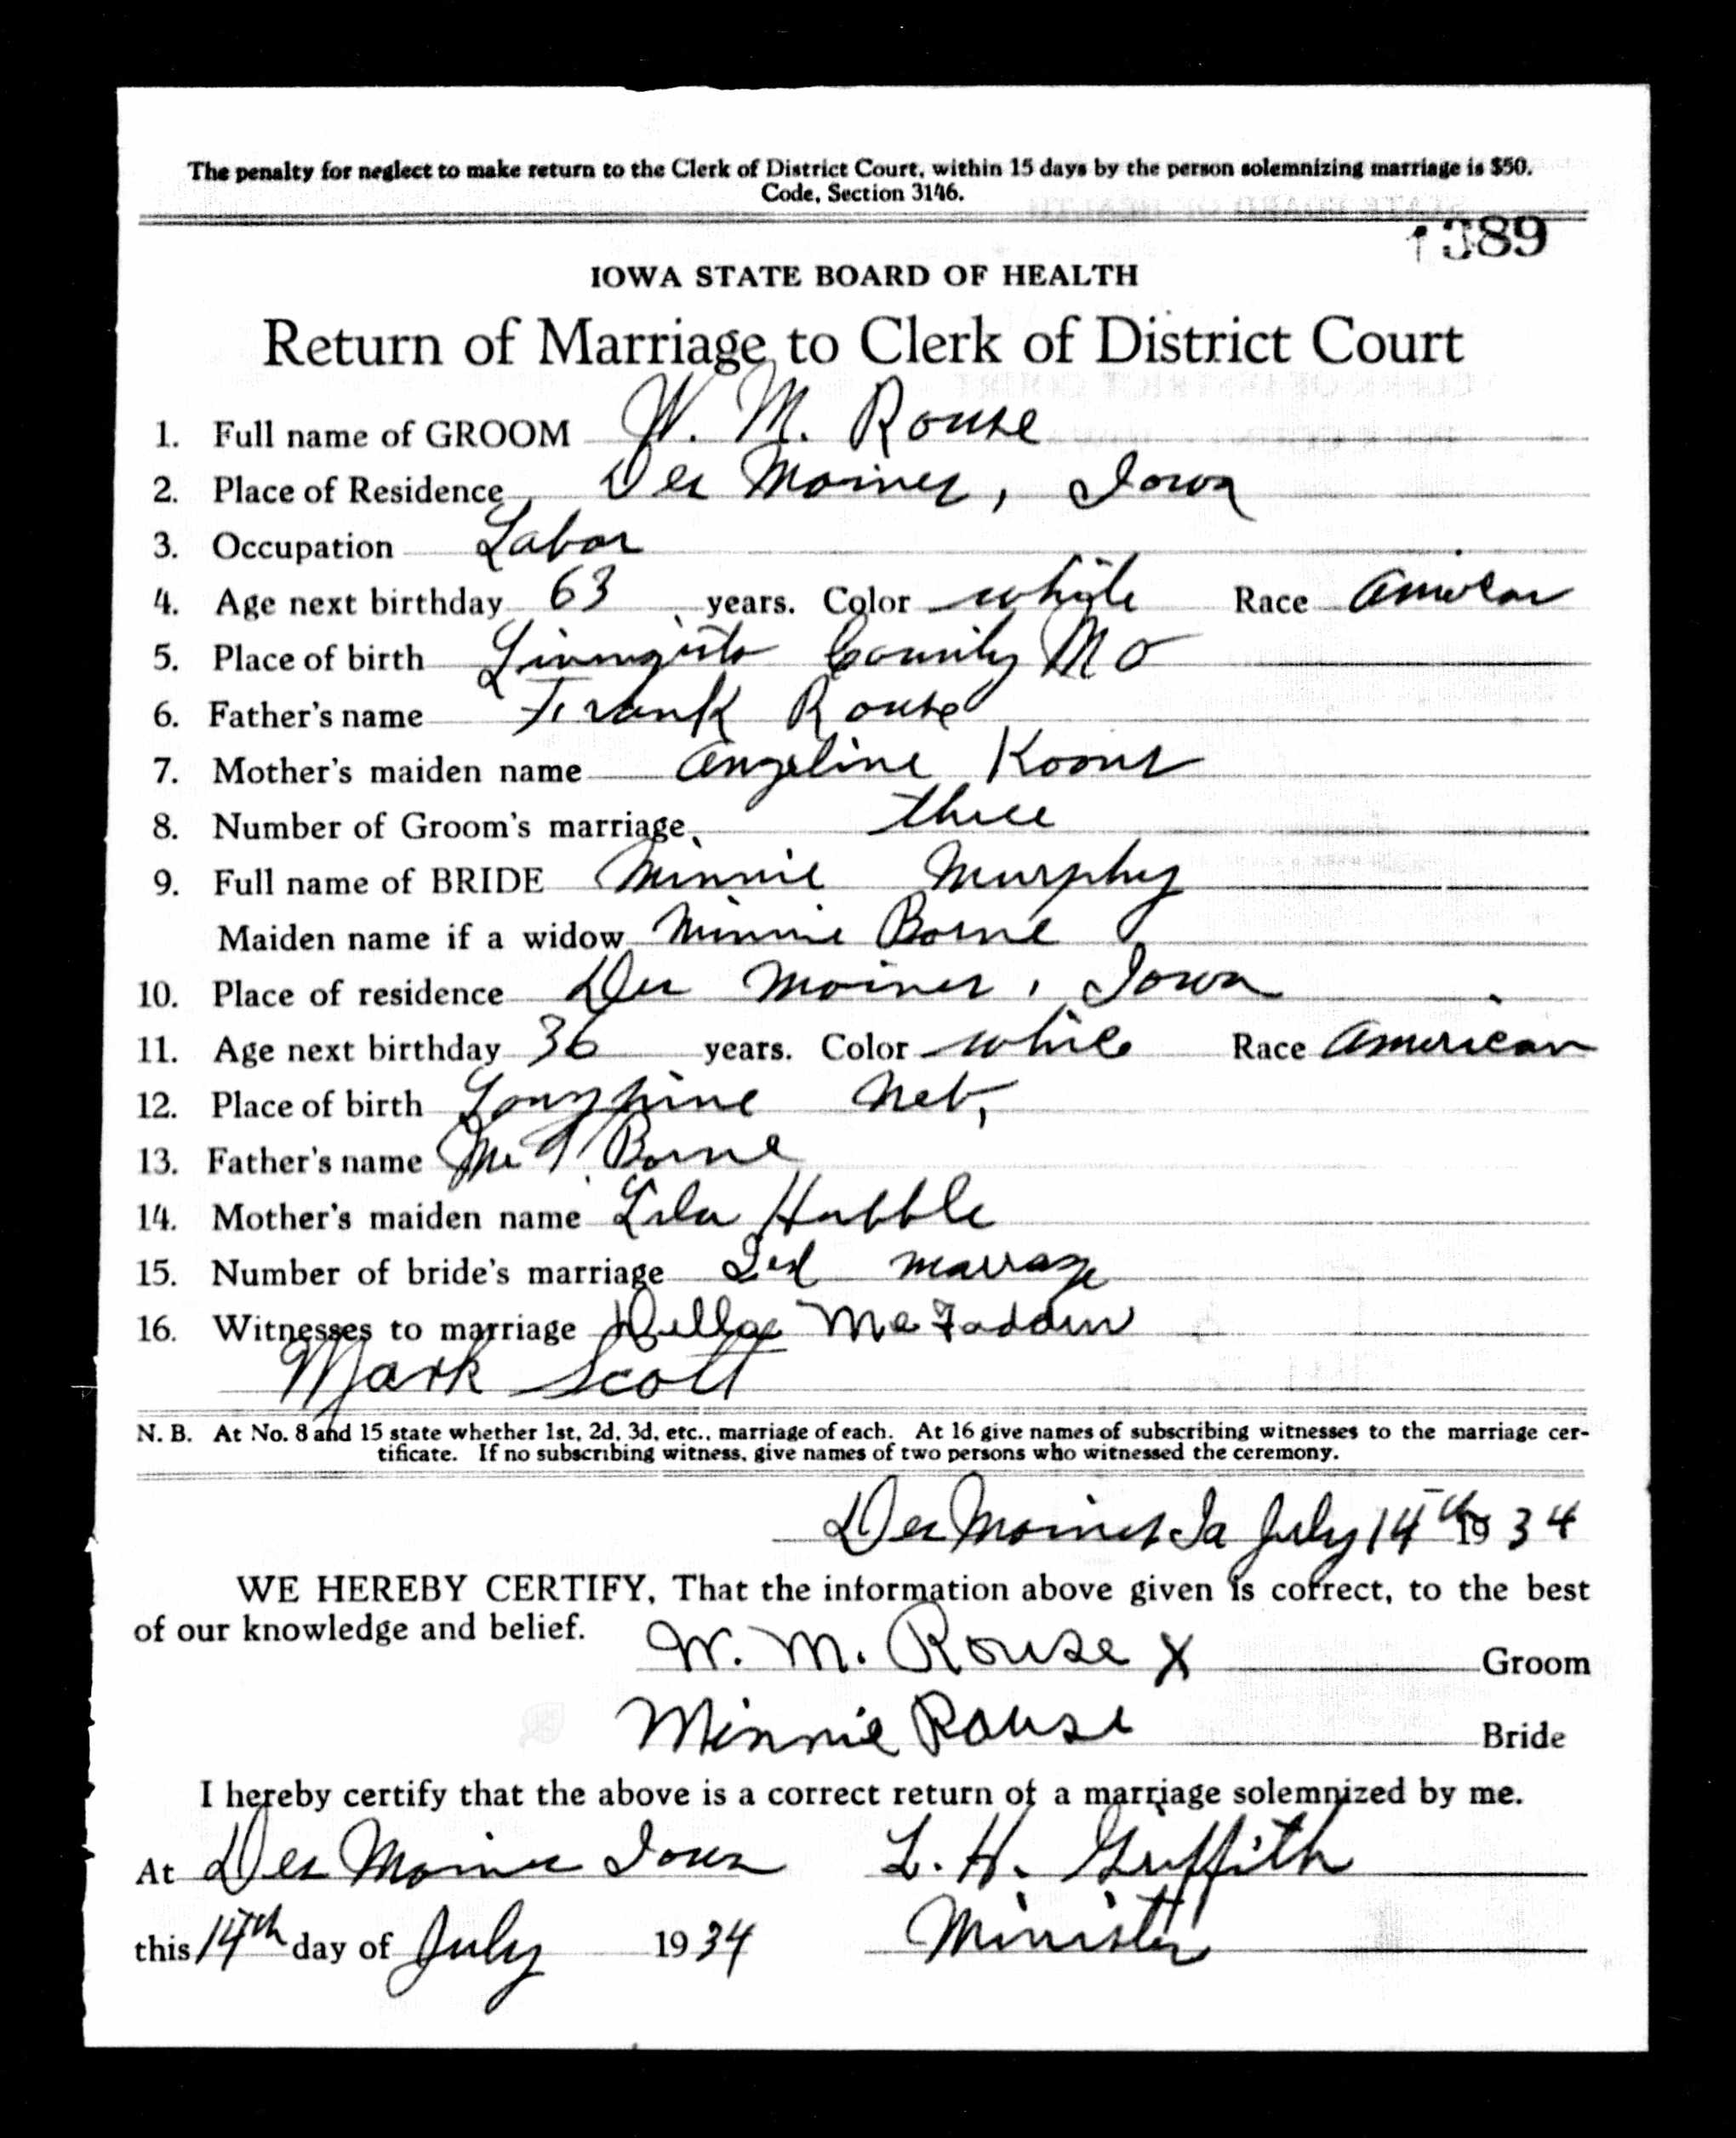 The penalty for neglect to make return to the Clerk of District Court, within 15 days by the person solemnizing marriage is $50.
Code, Section 3146.
1389
IOWA STATE BOARD OF HEALTH
Return of Marriage to Clerk of District Court
1. Full name of GROOM W. M. Rouse
2. Place of Residence Des Moines, Iowa
3. Occupation Labor
4. Age next birthday 63 years. Color white Race
5. Place of birth County Mo
6. Father's name Frank Rouse
7. Mother's maiden name Angeline Koons
8. Number of Groom's marriage three
9. Full name of BRIDE Minnie Murphy
Maiden name if a widow Minnie Borne
10. Place of residence Des Moines, Iowa
11. Age next birthday 36 years. Color white Race American
12. Place of birth Longpine Neb,
13. Father's name Borne
14. Mother's maiden name Hubble
15. Number of bride's marriage
16. Witnesses to marriage Della McFadden
Mark Scott
N. B. At No. 8 and 15 state whether 1st, 2d, 3d, etc., marriage of each. At 16 give names of subscribing witnesses to the marriage cer-
tificate. If no subscribing witness, give names of two persons who witnessed the ceremony.
Des Moines Ia July 14th 1934
WE HEREBY CERTIFY, That the information above given is correct, to the best
of our knowledge and belief.
W. M. Rouse X Groom
Minnie Rouse Bride
I hereby certify that the above is a correct return of a marriage solemnized by me.
At Des Moines Iowa L. H. Griffith
this 14th day of July 1934 Minister